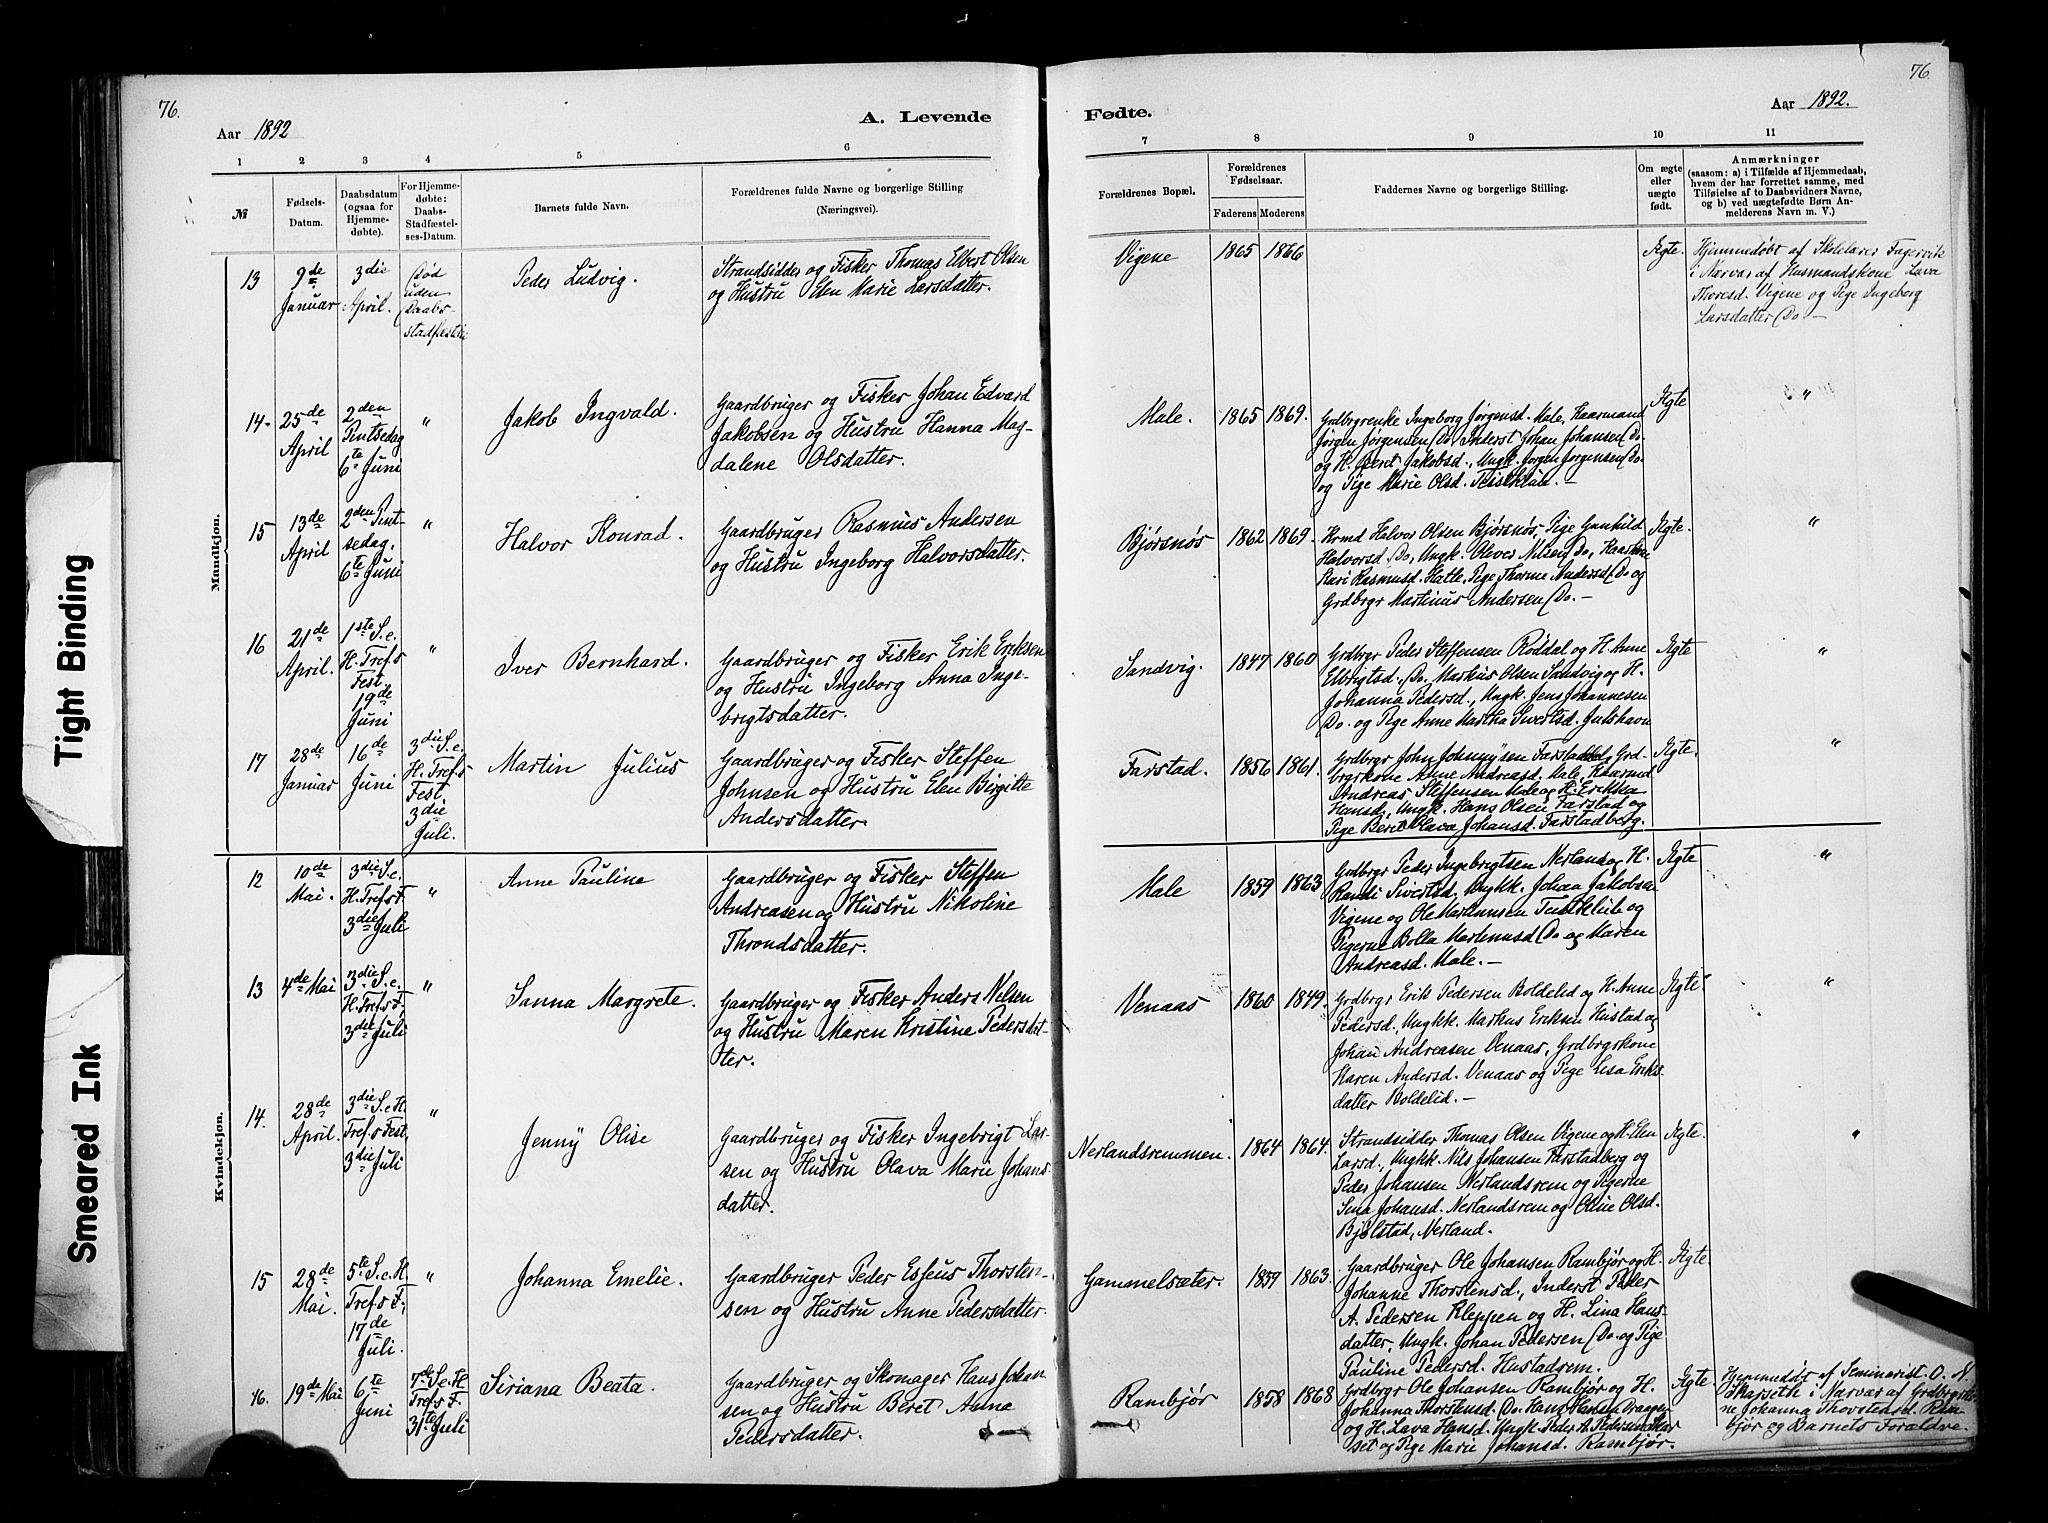 76.
Aar 1892
A. Levende
1 2 3 4 5 6
№
Fødsels-
Datum.
Daabsdatum
(ogsaa for
Hjemme-
døbte).
For Hjemme-
døbte:
Daabs-
Stadfæstel-
ses-Datum.
Barnets fulde Navn.
Forældrenes fulde Navne og borgerlige Stilling
(Næringsvei).
Mandkjøn.
13
9de
Januar
3die
April.
Død
uden
Daabs-
stadfæstelse
Peder Ludvig.
Strandsidder og Fisker Thomas Elbert Olsen
og Hustru Elen Marie Larsdatter.
14.
25de
April
2den
Pintsedag
6te Juni
"
Jakob Ingvald.
Gaardbruger og Fisker Johan Edvard
Jakobsen og Hustru Hanna Mag-
dalene Olsdatter.
15
13de
April
2den Pint-
sedag,
6te Juni
"
Halvor Konrad.
Gaardbruger Rasmus Andersen
og Hustru Ingeborg Halvorsdatter.
16
21de
April.
1ste S. e.
H. Tref.s
Fest
19de
Juni
"
Iver Bernhard.
Gaardbruger og Fisker Erik Eriksen
og Hustru Ingeborg Anna Inge-
brigtsdatter.
17
28de
Januar
16de
Juni
3die S. e.
H. Tref.s
Fest
3die
Juli.
Martin Julius
Gaardbruger og Fisker Steffen
Johnsen og Hustru Elen Birgitte
Andersdatter.
Kvindekjøn.
12
10de
Mai.
3die S. e.
H. Tref.s F.
3die Juli
"
Anne Pauline
Gaardbruger og Fisker Steffen
Andreasen og Hustru Nikoline
Throndsdatter.
13
4de Mai
3die S. e.
H. Tref.s F.
3die Juli
"
Sanna Margrete.
Gaardbruger og Fisker Anders Nelsen
og Hustru Maren Kristine Pedersdat-
ter.
14.
28de
April.
3die S. e. H.
Tref.s Fest
3die Juli
"
Jenny Olise
Gaardbruger og Fisker Ingebrigt Lar-
sen og Hustru Olava Marie Johans-
datter.
15
28de
Mai.
5te S. e. H
Tref.s F.
17de
Juli.
"
Johanna Emelie.
Gaardbruger Peder Esseus Thorsten-
sen og Hustru Anne Pedersdatter.
16.
19de Mai
6te
Juni
7de S. e. H
Tref.s F.
31te Juli
Siriana Beata.
Gaardbruger og Skomager Hans Johan
sen og Hustru Beret Anna
Pedersdatter.
76.
Fødte.
Aar 1892.
7 8 9 10 11
Forældrenes Bopæl.
Forældrenes
Fødselsaar.
Faderens Moderens
Faddernes Navne og borgerlige Stilling.
Om ægte
eller
uægte
født.
Anmærkninger
(saasom: a) i Tilfælde af Hjemmedaab,
hvem der har forrettet samme, med
Tilføielse af to Daabsvidners Navne,
og b) ved uægtefødte Børn An-
melderens Navn m. V.)
Vigene 1865 1866 Ægte.
Hjemmedøbt af Skolelærer Fagervik
i Nærvær af Husmandskone Lava
Thoresd. Vigene og Pige Ingeborg
Larsdatter Do –
Male. 1865 1869.
Grdbgrenke Ingeborg Jørgensd. Male, Kaarmand
Jørgen Jørgensen Do. Inderst Johan Johansen Do.
og H. Beret Jakobsd., Ungk. Jørgen Jørgensen Do.
og Pige Marie Olsd.
Ægte "
Bjørsnøs 1862 1869.
Krmd Halvor Olsen Bjørsnøs, Pige Gunhild
Halvorsd. Do, Ungk. Oliver Nilsen Do, Kaarkone
Kari Rasmusd. Hatle, Pige Thorine Andersd. Do og
Grdbrgr Martinus Andersen Do. –
Ægte. "
Sandvig. 1847 1860
Grdbrgr Peder Steffensen Røddal og H. Anne
Elbrigtsd. Do. Markus Olsen Sandvig og H.
Johanna Pedersd., Ungk. Jens Johannesen
Do. og Pige Anne Martha Sivertsd. Julshavn
Ægte "
Farstad. 1856 1861.
Grdbrgr John Johnnysen Farstad, Grd-
brgrkone Anne Andreasd. Male, Kaarmd
Andreas Steffensen Male og H. Erikka
Hansd., Ungk. Hans Olsen Farstad og
Pige Berit Olava Johansd. Farstadberg.
Ægte "
Male 1859 1863
Grdbrgr Peder Ingebrigtsen Nerland og H.
Randi Sivertsd., Ungkk. Johan Jakobsen
Vigene og Ole Martinusen og
Pigerne Bolla Martinusd. Do og Maren
Andreasd. Male. –
Ægte "
Venaas 1860 1849.
Grdbrgr Erik Pedersen Boldelid og H. Anne
Pedersd., Ungkk. Markus Eriksen Hustad og
Johan Andreasen Venaas, Grdbrgrkone
Karen Andersd. Venaas og Pige Lisa Eriks-
datter Boldelid. –
Ægte "
Nerlandsremmen. 1864 1864.
Strandsidder Thomas Olsen Vigene og H. Elen
Larsd., Ungkk. Nils Johansen Farstadberg og
Peder Johansen Nerlandsrem og Pigerne
Sina Johansd. Nerlandsrem og Oline Olsd.
Bjølstad, Nerland.
Ægte. "
Gammelsæter. 1859 1863.
Gaardbruger Ole Johansen Rambjør og H.
Johanne Thorstensd., Inderst Peder
A. Pedersen Kleppen og H. Lina Hans-
datter, Ungk. Johan Pedersen Do. og Pige
Pauline Pedersd. Hustadrem.
Ægte.
Rambjør 1858 1868
Grdbrgr Ole Johansen Rambjør og H.
Johanna Thorstensd. Do. Hans Hansen
og H. Lava Hansd. Ungk. Peder A. Pedersen
og Pige Marie Johansd. Rambjør.
Ægte.
Hjemmedøbt af Seminarist O. N.
Skarseth i Nærvær af Grdbrgrko-
ne Johanna Thorstensd. Ram
bjør og Barnets Forældre.
Tight Binding
Smeared Ink